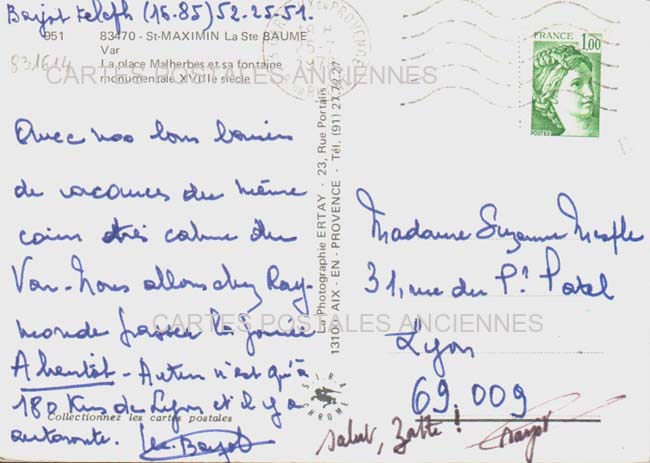 Bayot teleph (16.85) 52.25.51.
951 83470 - St-MAXIMIN La Ste BAUME
Var
La place Malherbes et sa fontaine
monumentale XVIIIe siècle
831614
CARTES POSTALES ANCIENNES
FRANCE
1,00
POSTES
Avec nos bons baisers
de vacances du même
coin très calme du
Var - Nous allons chez Ray-
monde passer la journée
A bientôt - Autun n'est qu'à
180 Kms de Lyon et il y a
autoroute. Les Bayot
Collectionnez les cartes postales
La Photographie ERTAY - 23, Rue Portalis
13100 AIX - EN - PROVENCE - Tél. (91) 27.70.27
CARTES POSTALES ANCIENNES
Madame Suzanne
31, rue du Pt
Lyon
69.009
Salut, !
Bayot